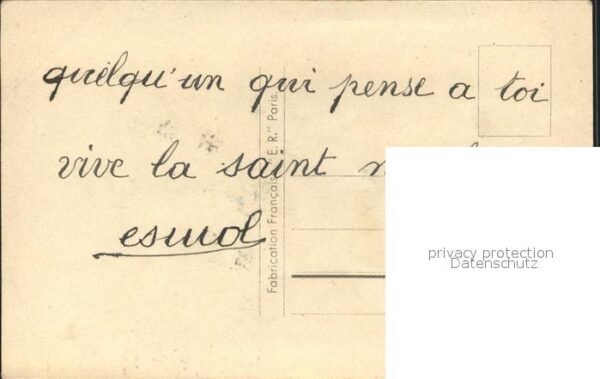 quelqu'un qui pense a toi
vive la saint
Fabrication Française "E. R." Paris.
privacy protection
Datenschutz